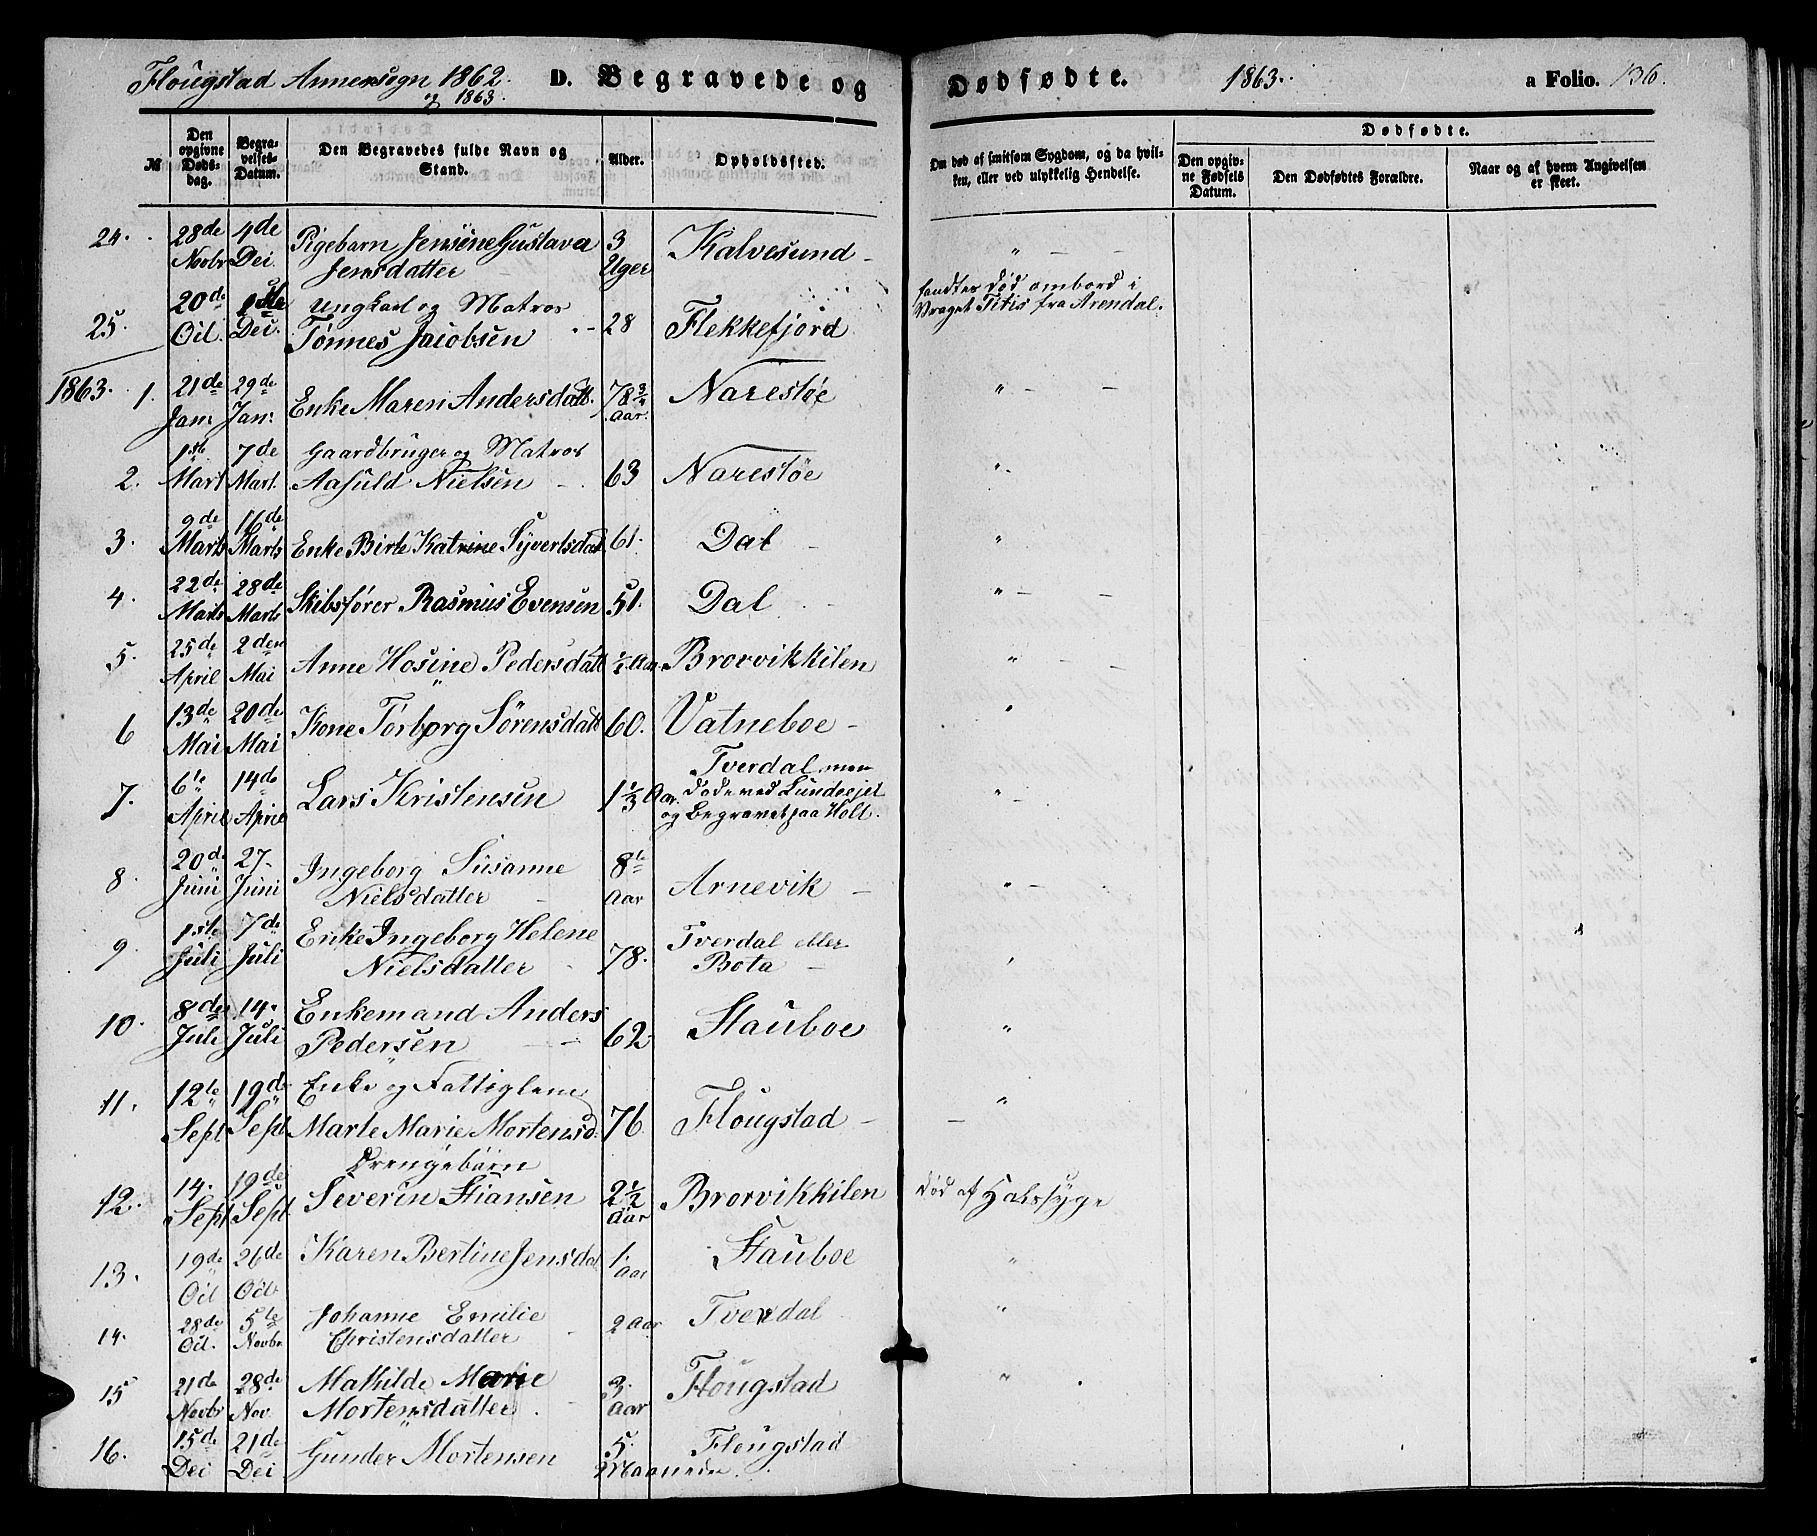 Flougstad Annexsogn 1862. D. Begravede og Dødfødte. 1863. a Folio. 136.
og 1863.
№ Den opgivne Døds-dag. Begra-velses-Datum. Den Begravedes fulde Navn og Stand. Alder. Opholdsted. Om død af smitsom Sygdom, og da hvil-ken, eller ved ulykkelig Hendelse. Dødfødte.
Den opgiv-ne Fødsels Datum. Den Dødfødtes Forældre. Naar og af hvem Angivelsen er skeet.
24. 28de Novbr 4de Dec. Pigebarn Jensine Gustava Jensdatter 3 Uger Kalvesund - " - -
25. 20de Oct. Dec. Ungkarl og Matros Tønnes Jacobsen 28 Flekkefjord fandtes død ombord i Vraget Titis fra Arendal.
1863. 1. 21de Jan: 29de Jan: Enke Maren Andersdatt. 78 3/4 Aar. Narestøe " - -
2. 1ste Mart 7de Mart. Gaardbruger og Matros Aasuld Nielsen 63 Narestøe "
3. 9de Marts 16de Marts Enke Birte Katrine Syvertsdat 61. Dal - "
4. 22de Marts 28de Marts Skibsfører Rasmus Evensen 51. Dal " - -
5. 25de April 2den Mai Anne Hosine Pedersdatt 1/2 Aar. Brorvikkilen " - -
6 13de Mai 20de Mai Kone Torborg Sørensdatt 60. Vatneboe - "
7. 6te April 14de April Lars Kristensen 1 1/3 Aar. Tverdal men døde ved Lundeejet og Begravet paa Holt. "
8. 20de Juni 27 Juni Ingeborg Susanne Nielsdatter 8te Aar Arnevik - " - -
9. 1ste Juli 7de Juli Enke Ingeborg Helene Nielsdatter 78. Tverdal eller Bota - "
10. 8de Juli 14. Juli Enkemand Anders Pedersen 62 Stauboe "
11. 12te Sept 19de Sept Enke og Fattiglem Marte Marie Mortensd. 76. Flougstad - - "
12. 14. Sept 19de Sept. Drengebarn Severin Stiansen 2 1/2 Aar Brorvikkilen død af Halssyge
13. 19de Oct 26de Oct Karen Bertine Jensdat 1. Aar Stauboe "
14. 28de Oct. 5te Novbr Johanne Emilie Christensdatter 2 Aar Tverdal "
15 21de Novbr 28de Nov. Mathilde Marie Mortensdatter 3. Aar Flougstad "
16. 15de Dec 21de Dec Gunder Mortensen 5. Maaneder. Flougstad